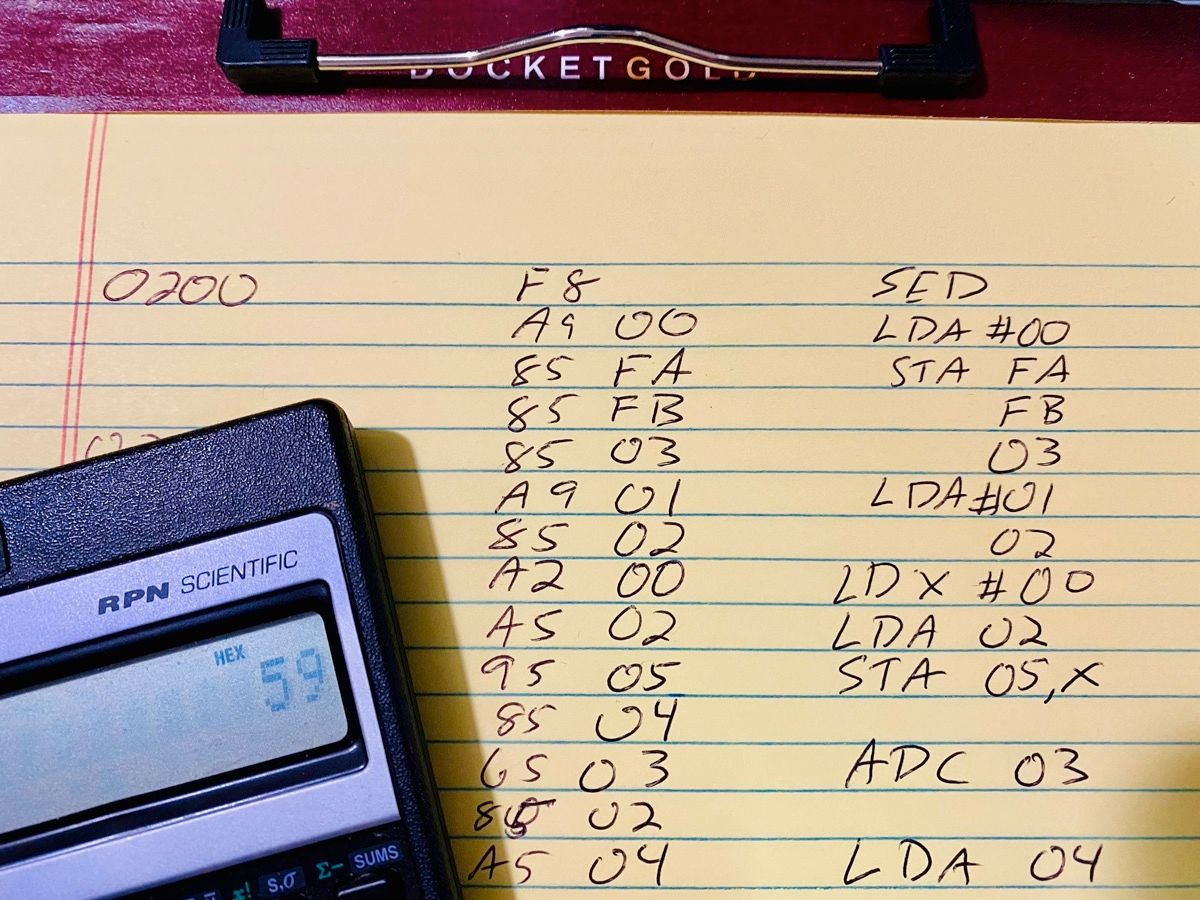 DOCKETGOLD
0200 F8 SED
A9 00 LDA #00
85 FA STA FA
85 FB FB
85 03 03
A9 01 LDA #01
85 02 02
A2 00 LDX #00
A5 02 LDA 02
95 05 STA 05,X
85 04
65 03 ADC 03
85 02
A5 04 LDA 04
RPN SCIENTIFIC
HEX
59
s,σ Σ- SUMS